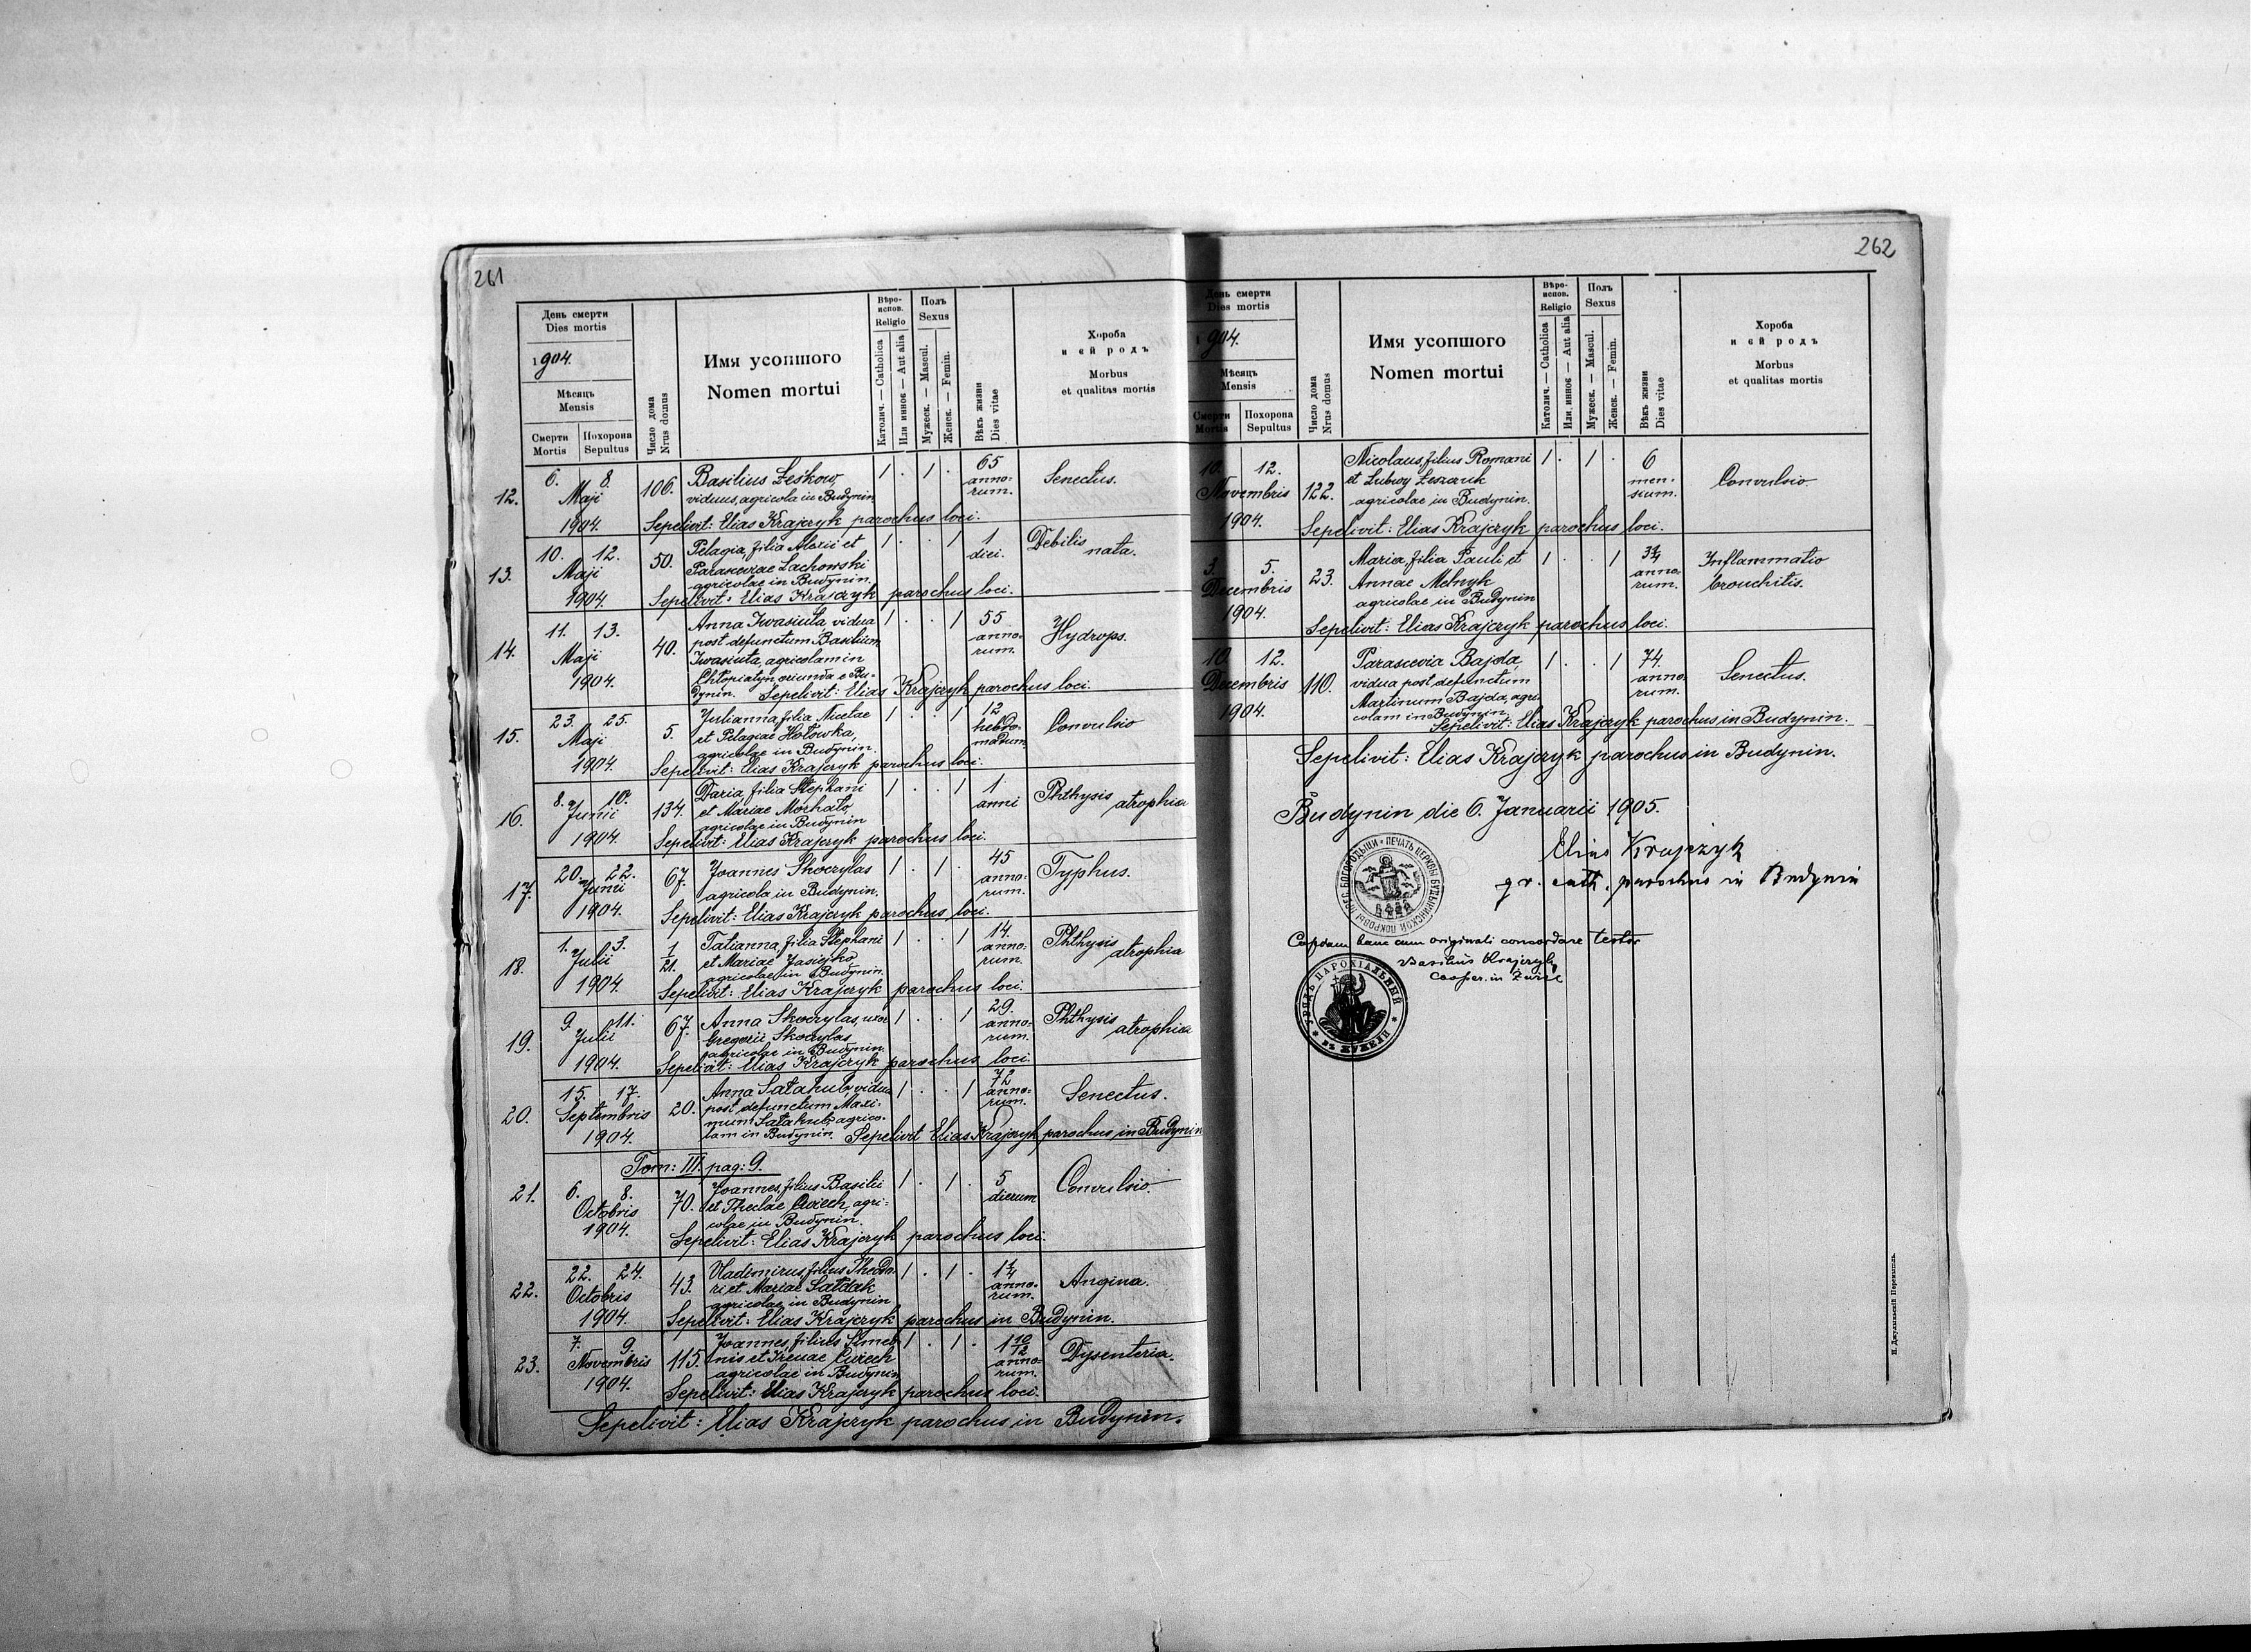 261
День смерти
Dies mortis
1904.
Мѣсяць
Mensis
Смерти
Mortis
Похорона
Sepultus
Число дома
Nrus domus
Имя усопшого
Nomen mortui
Вѣро-
испов.
Religio
Католич. — Catholica
Или инноє — Aut alia
Полъ
Sexus
Мужеск. — Mascul.
Женск. — Femin.
Вѣкъ жизни
Dies vitae
Хороба
и єй родъ
Morbus
et qualitas mortis
12.
6. 8.
Maji
1904.
106.
Basilius Leśkow,
viduus, agricola in Budynin
1 . 1 .
65
anno-
rum.
Senectus.
Sepelivit: Elias Krajczyk parochus loci.
13.
10. 12.
Maji
1904.
50.
Pelagia, filia Alexii et
Parasceviae Lachowski
agricolae in Budynin.
1 . . 1
1
diei.
Debilis
nata.
Sepelivit: Elias Krajczyk parochus loci.
14.
11. 13.
Maji
1904.
40.
Anna Iwasiuta, vidua
post defunctum Basilium
Iwasiuta, agricolam in
Chłopiatyn, oriunda e Bu-
dynin. Sepelivit: Elias Krajczyk parochus loci.
1 . . 1
55
anno-
rum.
Hydrops.
15.
23. 25.
Maji
1904.
5.
Julianna, filia Nicetae
et Pelagiae Hołowka,
agricolae in Budynin.
1 . . 1
12
hebdo-
madum
Convulsio
Sepelivit: Elias Krajczyk parochus loci.
16.
8. 10.
Junii
1904.
134.
Daria, filia Stephani
et Mariae Morhało,
agricolae in Budynin
1 . . 1
1
anni
Phthysis
atrophica
Sepelivit: Elias Krajczyk parochus loci.
17.
20. 22.
Junii
1904.
67.
Joannes Skoczylas
agricola in Budynin.
1 . 1 .
45
anno-
rum.
Typhus.
Sepelivit: Elias Krajczyk parochus loci.
18.
1. 3.
Julii
1904.
1/21.
Tatianna, filia Stephani
et Mariae Jasiejko
agricolae in Budynin.
1 . . 1
14.
anno-
rum.
Phthysis
atrophica
Sepelivit: Elias Krajczyk parochus loci.
19.
9. 11.
Julii
1904.
67.
Anna Skoczylas, uxor
Gregorii Skoczylas
agricolae in Budynin.
1 . . 1
29.
anno-
rum.
Phthysis
atrophica
Sepeliit: Elias Krajczyk parochus loci.
20.
15. 17.
Septembris
1904.
20.
Anna Sałahub, vidua
post defunctum Maxi-
mum Sałahub, agrico-
lam in Budynin. Sepelivit Elias Krajczyk parochus in Budynin
1 . . 1
72
anno-
rum.
Senectus.
Tom: III. pag: 9.
21.
6. 8.
Octobris
1904.
70.
Joannes, filius Basilii
et Theclae Ćwiech, agri-
colae in Budynin.
1 . 1 .
5
dierum
Convulsio.
Sepelivit: Elias Krajczyk parochus loci.
22.
22. 24.
Octobris
1904.
43.
Vladimirus, filius Theodo-
ri et Mariae Sałdak
agricolae in Budynin
1 . 1 .
1 1/4
anno-
rum.
Angina.
Sepelivit: Elias Krajczyk parochus in Budynin.
23.
7. 9.
Novembris
1904.
115.
Joannes, filius Simeo-
nis et Irenae Ćwiech
agricolae in Budynin
1 . 1 .
1 10/12
anno-
rum.
Dysenteria.
Sepelivit: Elias Krajczyk parochus loci.
Sepelivit: Elias Krajczyk parochus in Budynin.
262
День смерти
Dies mortis
1904.
Мѣсяць
Mensis
Смерти
Mortis
Похорона
Sepultus
Число дома
Nrus domus
Имя усопшого
Nomen mortui
Вѣро-
испов.
Religio
Католич. — Catholica
Или инноє — Aut alia
Полъ
Sexus
Мужеск. — Mascul.
Женск. — Femin.
Вѣкъ жизни
Dies vitae
Хороба
и єй родъ
Morbus
et qualitas mortis
10. 12.
Novembris
1904.
122.
Nicolaus, filius Romani
et Lubwy Leszczuk
agricolae in Budynin.
1 . 1 .
6
men-
sium.
Convulsio.
Sepelivit: Elias Krajczyk parochus loci.
3. 5.
Decembris
1904.
23.
Maria, filia Pauli et
Annae Melnyk
agricolae in Budynin
1 . . 1
3/4
anno-
rum.
Inflammatio
bronchitis.
Sepelivit: Elias Krajczyk parochus loci.
10. 12.
Decembris
1904.
110.
Parascevia Bajda,
vidua post defunctum
Martinum Bajda, agri-
colam in Budynin.
1 . . 1
74.
anno-
rum.
Senectus.
Sepelivit: Elias Krajczyk parochus in Budynin.
Sepelivit: Elias Krajczyk parochus in Budynin.
Budynin die 6. Januarii 1905.
Elias Krajczyk
gr. cath. parochus in Budynin
ПЕЧАТЬ ЦЕРКВЫ БУДЫНИНСКОЙ ПОКРОВЫ ПРЕС. БОГОРОДЫЦИ
Copiam hanc cum originali concordare testor
Basilius Krajczyk
Cooper. in Żużel
УРЯДЪ ПАРОХІАЛЬНЫЙ ВЪ ЖУЖЕЛИ
Н. Джулыньскій Перемышль.